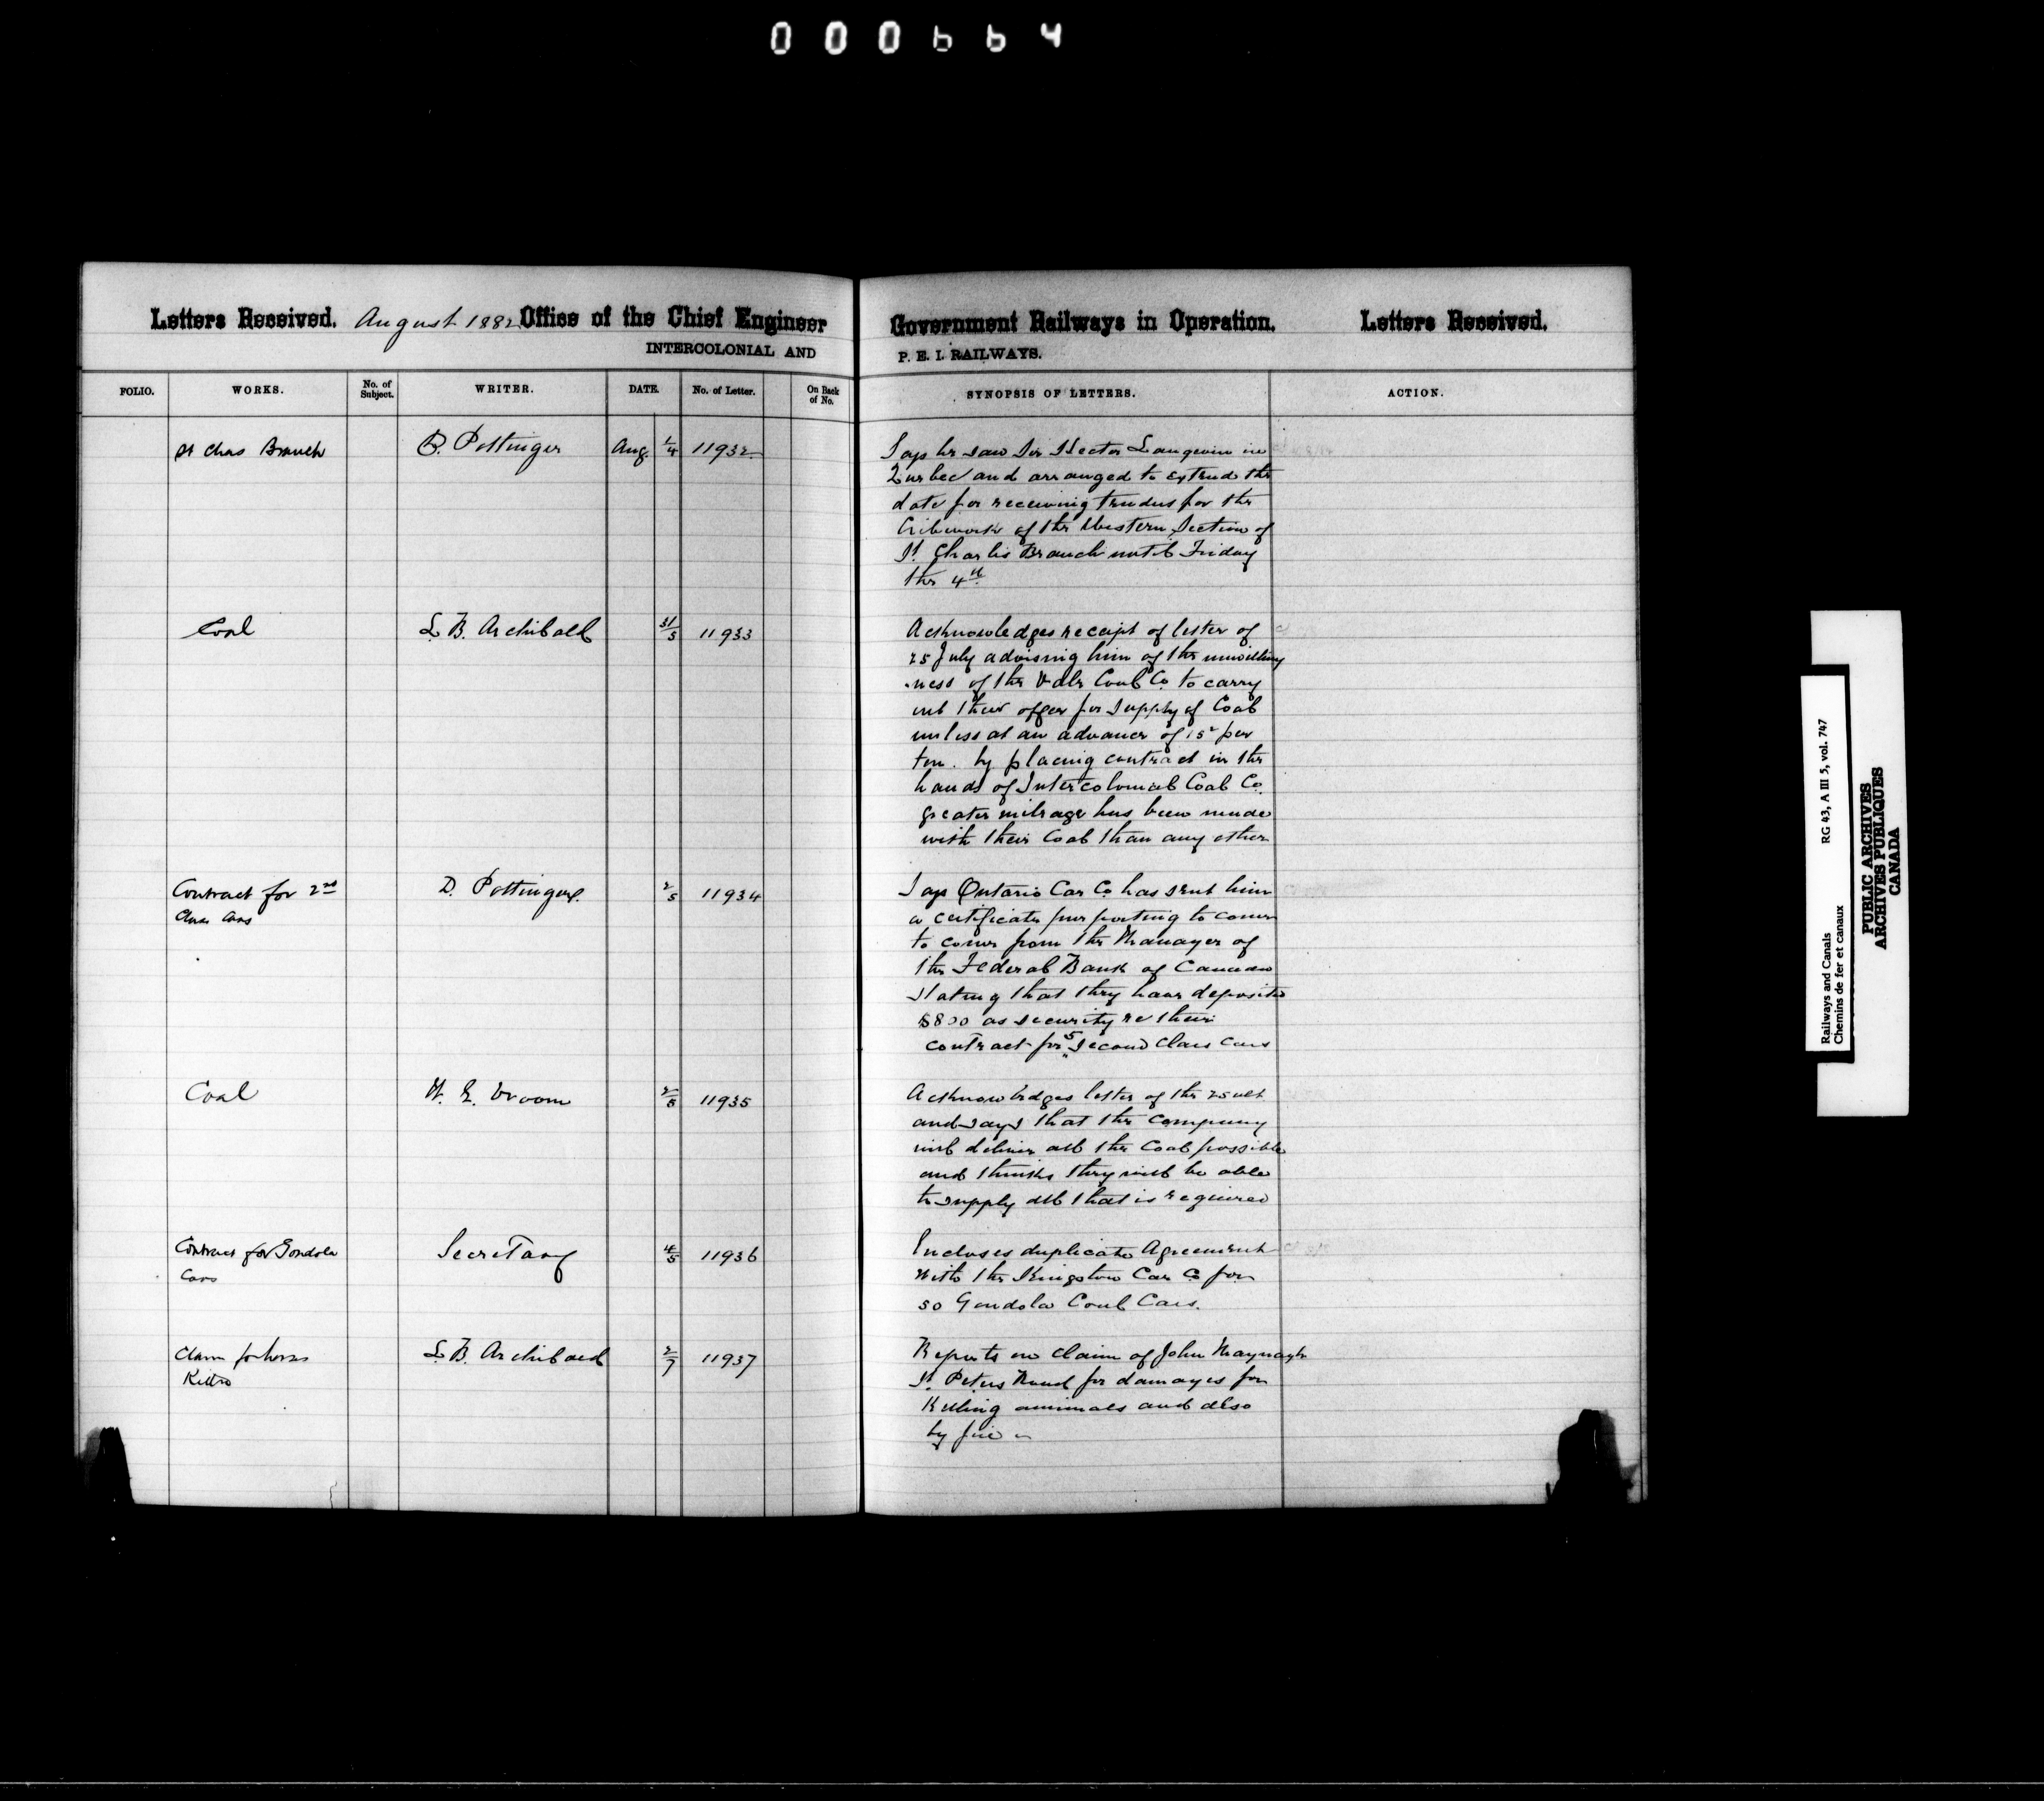 000664
Letters Received. August 1882 Office of the Chief Engineer Government Railways in Operation. Letters Received.
INTERCOLONIAL AND P. E. I. RAILWAYS.
FOLIO. WORKS. No. of Subject. WRITER. DATE. No. of Letter. On Back of No. SYNOPSIS OF LETTERS. ACTION.
St Chas Branch D. Pottinger Aug. 1/4 11932 Says he saw Sir Hector Langevin in
Quebec and arranged to extend the
date for receiving tenders for the
Cribwork of the Western Section of
St. Charles Branch until Friday
the 4th
Coal L. B. Archibald 31/5 11933 Acknowledges receipt of letter of
25 July advising him of the unwilling
-ness of the Vale Coal Co. to carry
out their offer for supply of Coal
unless at an advance of 15c per
ton. by placing contract in the
hands of Intercolonial Coal Co.
greater milrage has been made
with their Coal than any other
Contract for 2nd D. Pottinger. 2/5 11934 Says Ontario Car Co has sent him
Class Cars a certificate purporting to come
to come from the Manager of
the Federal Bank of Canada
stating that they have deposited
$800 as security re their
contract for 5 second Class Cars
Coal W. E. Vroom 2/5 11935 Acknowledges letter of the 25 ult
and says that the Company
will deliver all the Coal possible
and thinks they will be able
to supply all that is required
Contract for Gondola Secretary 4/5 11936 Incloses duplicate Agreement
Cars with the Kingston Car Co for
50 Gondola Coal Cars.
Claim for horse L. B. Archibald 2/7 11937 Reports on claim of John
Killed St. Peters Road for damages for
Killing animals and also
by fire
Railways and Canals RG 43, A III 5, vol. 747
Chemins de fer et canaux
PUBLIC ARCHIVES
ARCHIVES PUBLIQUES
CANADA